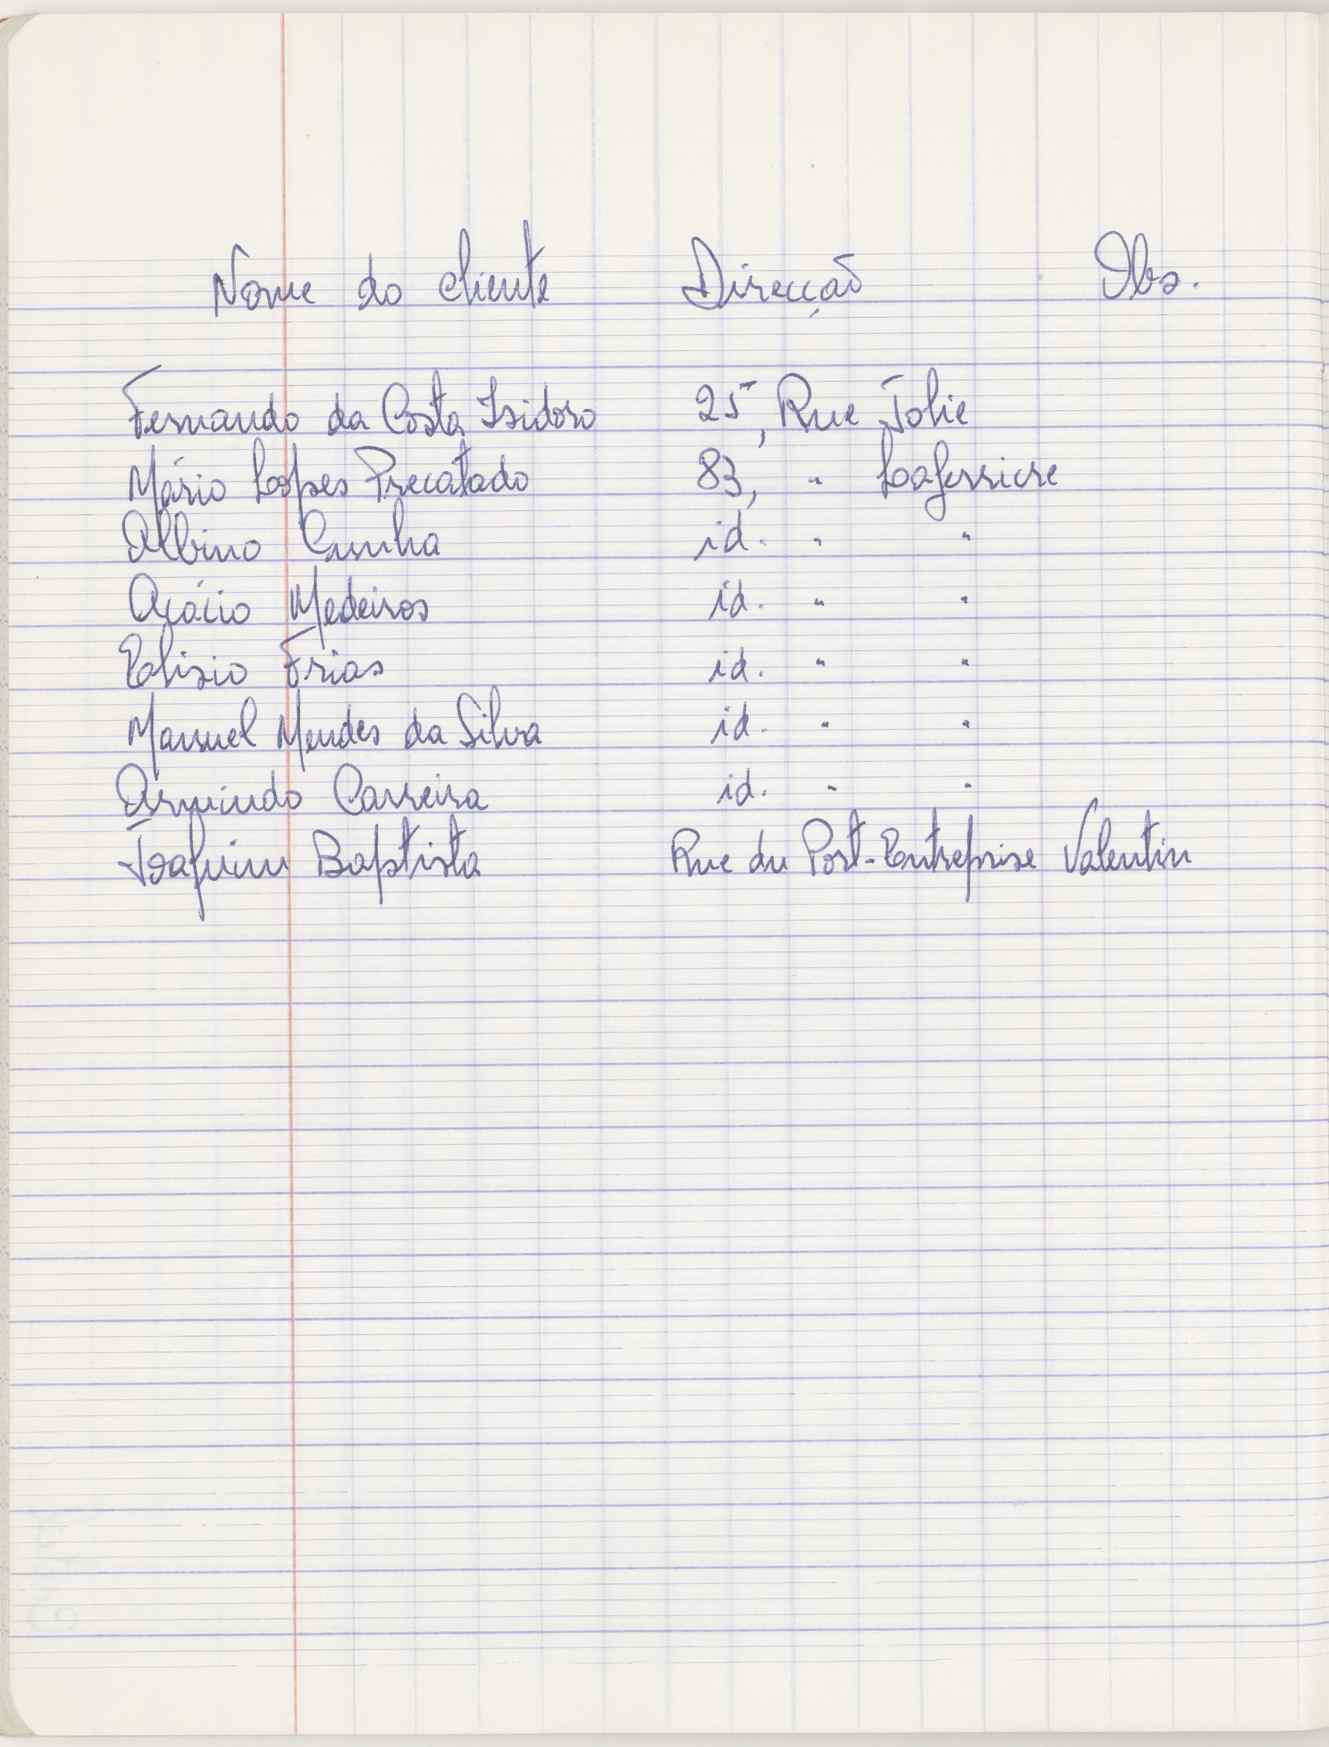 Nome do cliente Direcção Obs.
Fernando da Costa Isidoro 25, Rue Jolie
Mário Lopes Precatado 83, " Laferriere
Albino Cunha id. " "
Acácio Medeiros id. " "
Elisio Frias id. " "
Manuel Mendes da Silva id. " "
Armindo Carreira id. " "
Joaquim Baptista Rue du Port-Entreprise Valentin